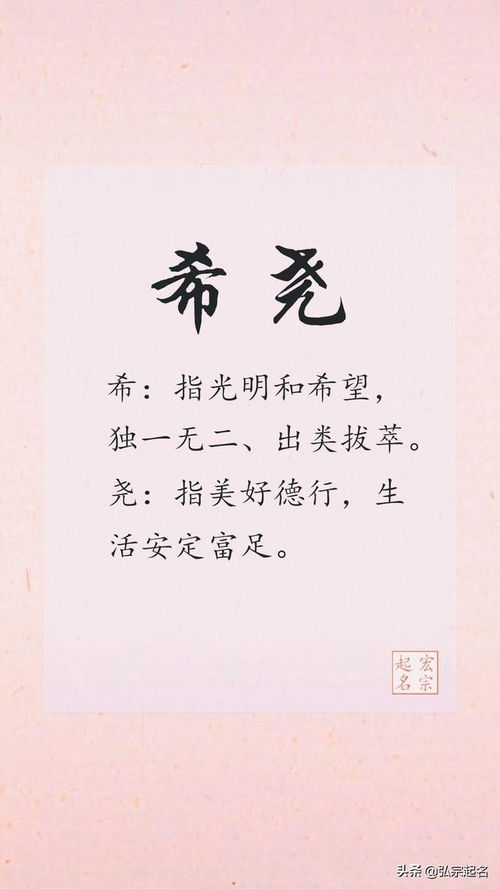 希尧
希：指光明和希望，
独一无二、出类拔萃。
尧：指美好德行，生
活安定富足。
宏宗
起名
头条@弘宗起名